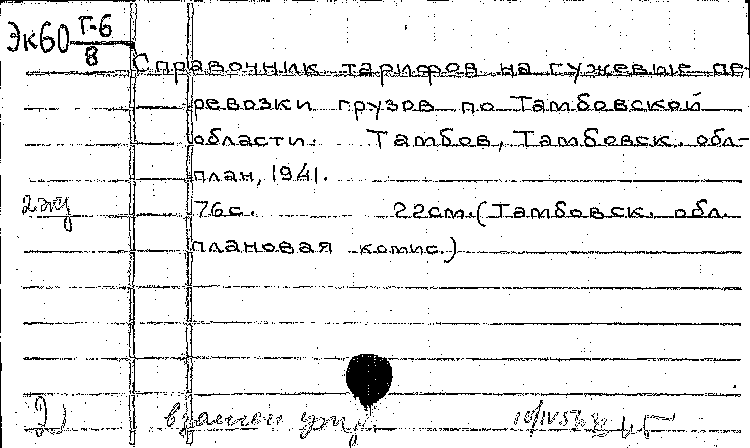 Эк60 Г-6
8
Справочник тарифов на гужевые пе-
ревозки грузов по Тамбовской
области. Тамбов, Тамбовск. обл-
план, 1941.
2 экз
76с. 22см. (Тамбовск. обл.
плановая комис.)
2) взамен